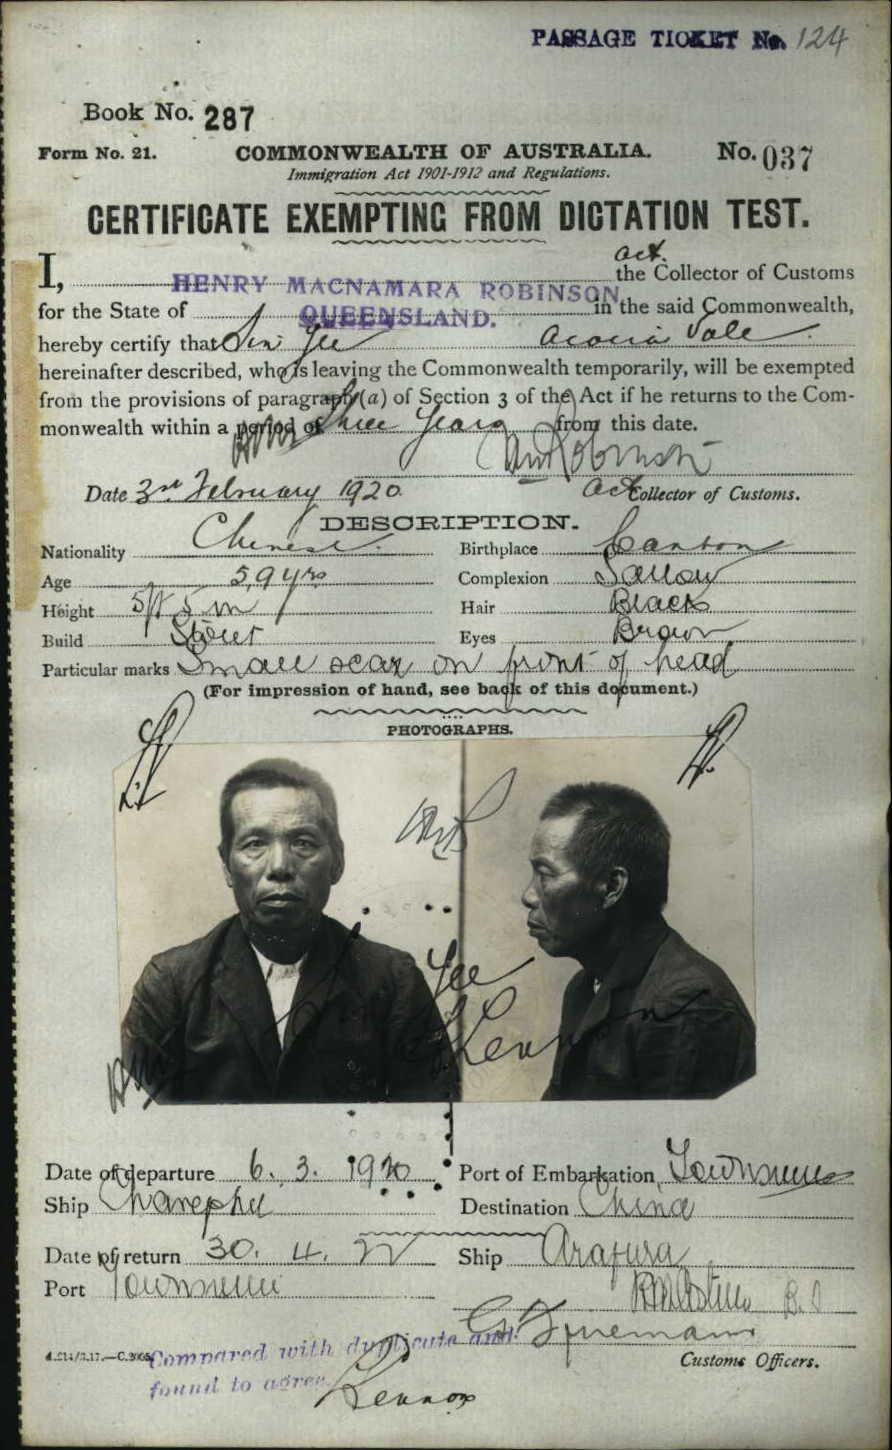 PASSAGE TICKET No. 124
Book No. 287
Form No. 21. COMMONWEALTH OF AUSTRALIA. No. 037
Immigration Act 1901-1912 and Regulations.
CERTIFICATE EXEMPTING FROM DICTATION TEST.
act.
I, HENRY MACNAMARA ROBINSON the Collector of Customs
for the State of QUEENSLAND. in the said Commonwealth,
hereby certify that Sin Yee Acacia Vale
hereinafter described, who is leaving the Commonwealth temporarily, will be exempted
from the provisions of paragraph (a) of Section 3 of the Act if he returns to the Com-
monwealth within a period of three years from this date.
HM Robinson
Date 3rd February 1920 Act Collector of Customs.
DESCRIPTION.
Nationality Chinese. Birthplace Canton
Age 59 yrs Complexion Sallow
Height 5ft 5 in Hair Black
Build Stout Eyes Brown
Particular marks Small scar on front of head
(For impression of hand, see back of this document.)
PHOTOGRAPHS.
HMR
Sin Yee
Lennox
Date of departure 6. 3. 1920 Port of Embarkation Townsville
Ship Destination China
Date of return 30. 4. 22 Ship Arafura
Port Townsville
Customs Officers.
Compared with duplicate and
found to agree.
Lennox